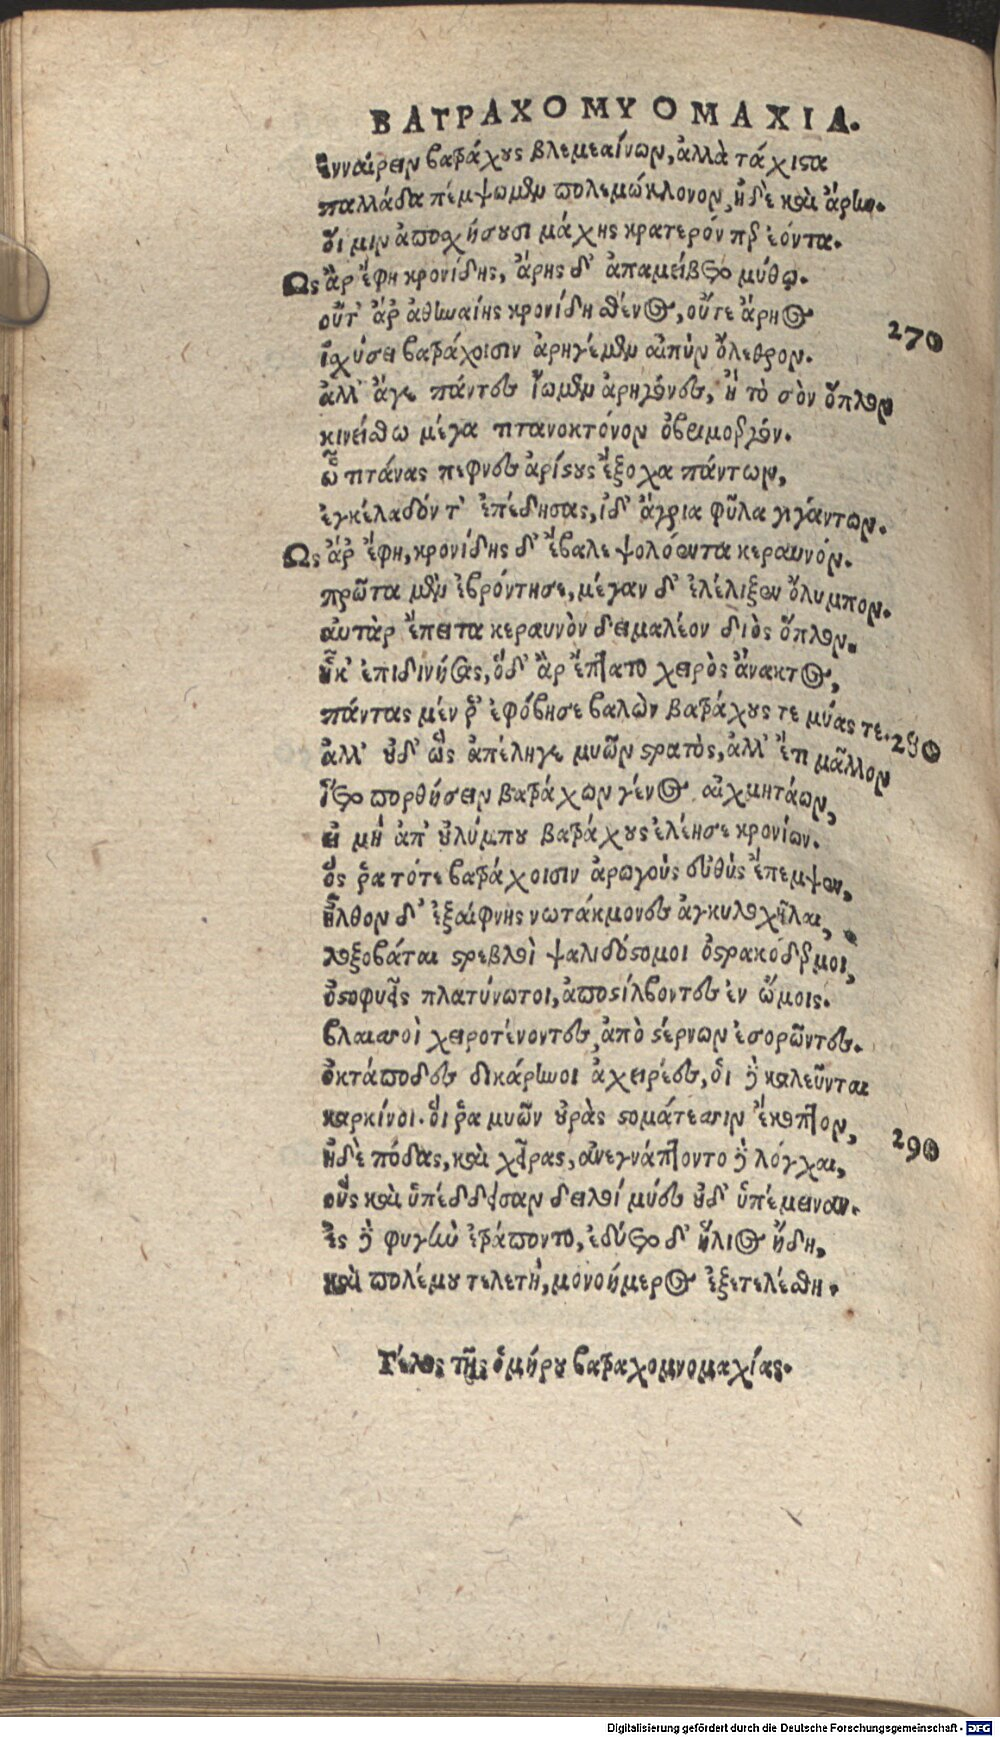 ΒΑΤΡΑΧΟΜΥΟΜΑΧΙΑ.
ἐνναίρειν βατράχους βλεμεαίνων, ἀλλὰ τάχιστα
παλλάδα πέμψωμεν πολεμόκλονον, ἠδὲ καὶ ἄρην.
οἵ μιν ἀποσχήσουσι μάχης κρατερόν περ ἐόντα.
Ως ἂρ ἔφη κρονίδης, ἄρης δ' ἀπαμείβετο μύθῳ.
οὔτ' ἄρ ἀθηναίης κρονίδη σθένος, οὔτε ἄρηος
270
ἰσχύσει βατράχοισιν ἀρηγέμεν αἰπὺν ὄλεθρον.
ἀλλ' ἄγε πάντες ἴωμεν ἀρηγόνες, ἢ τὸ σὸν ὅπλον
κινείσθω μέγα τιτανοκτόνον ὀβριμοεργόν.
ᾧ τιτάνας πέφνες ἀρίστους ἔξοχα πάντων,
ἐγκέλαδόν τ' ἐπέδησας, ἰδ' ἄγρια φῦλα γιγάντων.
Ως ἄρ ἔφη, κρονίδης δ' ἔβαλε ψολόεντα κεραυνόν.
πρῶτα μὲν ἐβρόντησε, μέγαν δ' ἐλέλιξεν ὄλυμπον.
αὐτὰρ ἔπειτα κεραυνὸν δειμαλέον διὸς ὅπλον.
ἧκ' ἐπιδινήσας, ὅδ' ἂρ ἔπτατο χειρὸς ἄνακτος,
πάντας μέν ῥ' ἐφόβησε βαλὼν βατράχους τε μύας τε.
280
ἀλλ' οὐδ' ὧς ἀπέληγε μυῶν στρατὸς, ἀλλ' ἔτι μᾶλλον
ἵετο πορθήσειν βατράχων γένος αἰχμητάων,
εἰ μὴ ἀπ' οὐλύμπου βατράχους ἐλέησε κρονίων.
ὅς ῥα τότε βατράχοισιν ἀρωγοὺς εὐθὺς ἔπεμψεν,
ἦλθον δ' ἐξαίφνης νωτάκμονες ἀγκυλοχῆλαι,
λοξοβάται στρεβλοὶ ψαλιδόστομοι ὀστρακόδερμοι,
ὀστοφυεῖς πλατύνωτοι, ἀποστίλβοντες ἐν ὤμοις.
βλαισοὶ χειροτένοντες, ἀπὸ στέρνων ἐσορῶντες.
ὀκτάποδες δικάρηνοι ἀχειρέες, οἱ δὲ καλεῦνται
καρκίνοι. οἵ ῥα μυῶν οὐρὰς στομάτεσσιν ἔκοπτον,
290
ἠδὲ πόδας, καὶ χεῖρας, ἀνεγνάμπτοντο δὲ λόγχαι,
οὓς καὶ ὑπέδδεισαν δειλοί μύες οὐδ' ὑπέμειναν.
ἐς δὲ φυγὴν ἐτράποντο, ἐδύετο δ' ἥλιος ἤδη,
καὶ πολέμου τελετὴ, μονοήμερος ἐξετελέσθη.
Τέλος τῆς ὁμήρου βατραχομυομαχίας.
Digitalisierung gefördert durch die Deutsche Forschungsgemeinschaft - DFG